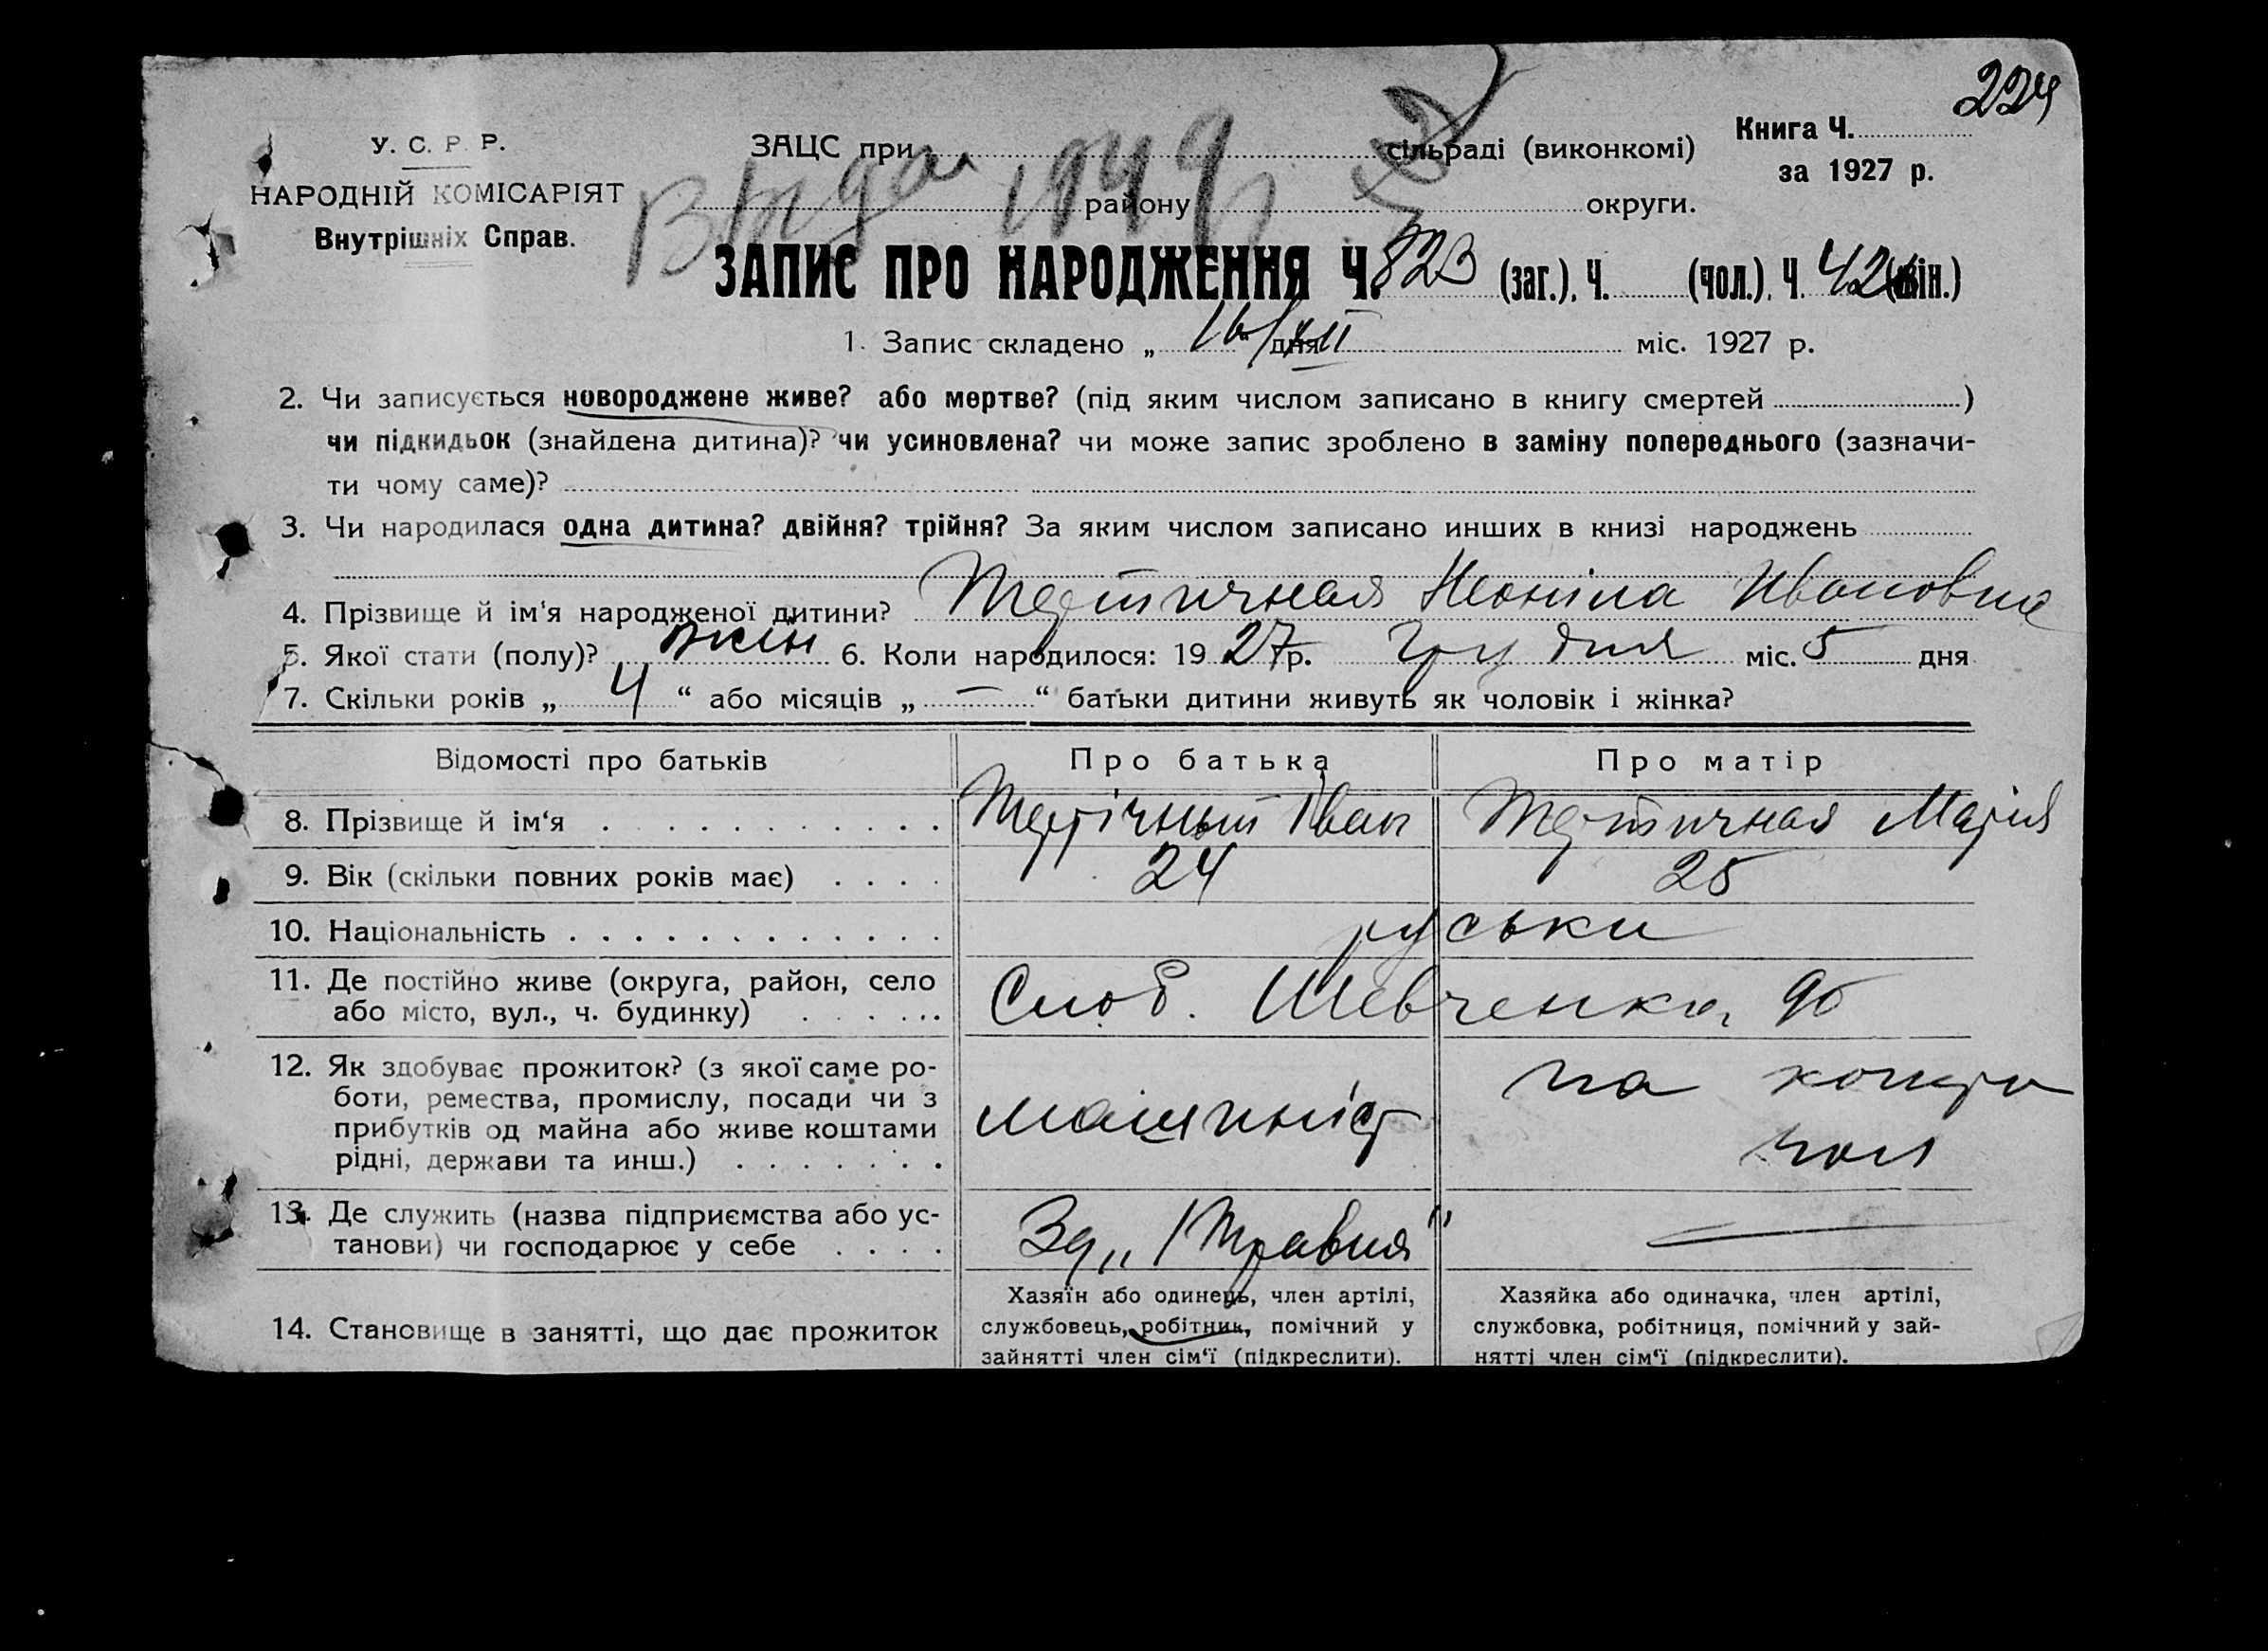 224
У. С. Р. Р.
НАРОДНІЙ КОМІСАРІЯТ
Внутрішніх Справ.
ЗАЦС при сільраді (виконкомі)
району округи.
Книга Ч.
за 1927 р.
1949
ЗАПИС ПРО НАРОДЖЕННЯ Ч. 823 (заг.), Ч. (чол.), Ч. 424 (жін.)
1. Запис складено „ 16/XII “ дня міс. 1927 р.
2. Чи записується новороджене живе? або мертве? (під яким числом записано в книгу смертей )
чи підкидьок (знайдена дитина)? чи усиновлена? чи може запис зроблено в заміну попереднього (зазначи-
ти чому саме)?
3. Чи народилася одна дитина? двійня? трійня? За яким числом записано инших в книзі народжень
4. Прізвище й ім'я народженої дитини? Неоніла Ивановна
5. Якої стати (полу)? жін 6. Коли народилося: 19 27 р. Грудня міс. 5 дня
7. Скільки років „ 4 “ або місяців „ — “ батьки дитини живуть як чоловік і жінка?
Відомості про батьків Про батька Про матір
8. Прізвище й ім‘я Іван Марія
9. Вік (скільки повних років має) 24 25
10. Національність руськи
11. Де постійно живе (округа, район, село
або місто, вул., ч. будинку) Слоб. Шевченка,
12. Як здобуває прожиток? (з якої саме ро-
боти, ремества, промислу, посади чи з
прибутків од майна або живе коштами
рідні, держави та инш.) машиніст на
13. Де служить (назва підприємства або ус-
танови) чи господарює у себе Зд „1 Травня“ —
14. Становище в занятті, що дає прожиток
Хазяїн або одинець, член артілі,
службовець, робітник, помічний у
зайнятті член сім‘ї (підкреслити).
Хазяйка або одиначка, член артілі,
службовка, робітниця, помічний у зай-
нятті член сім‘ї (підкреслити).